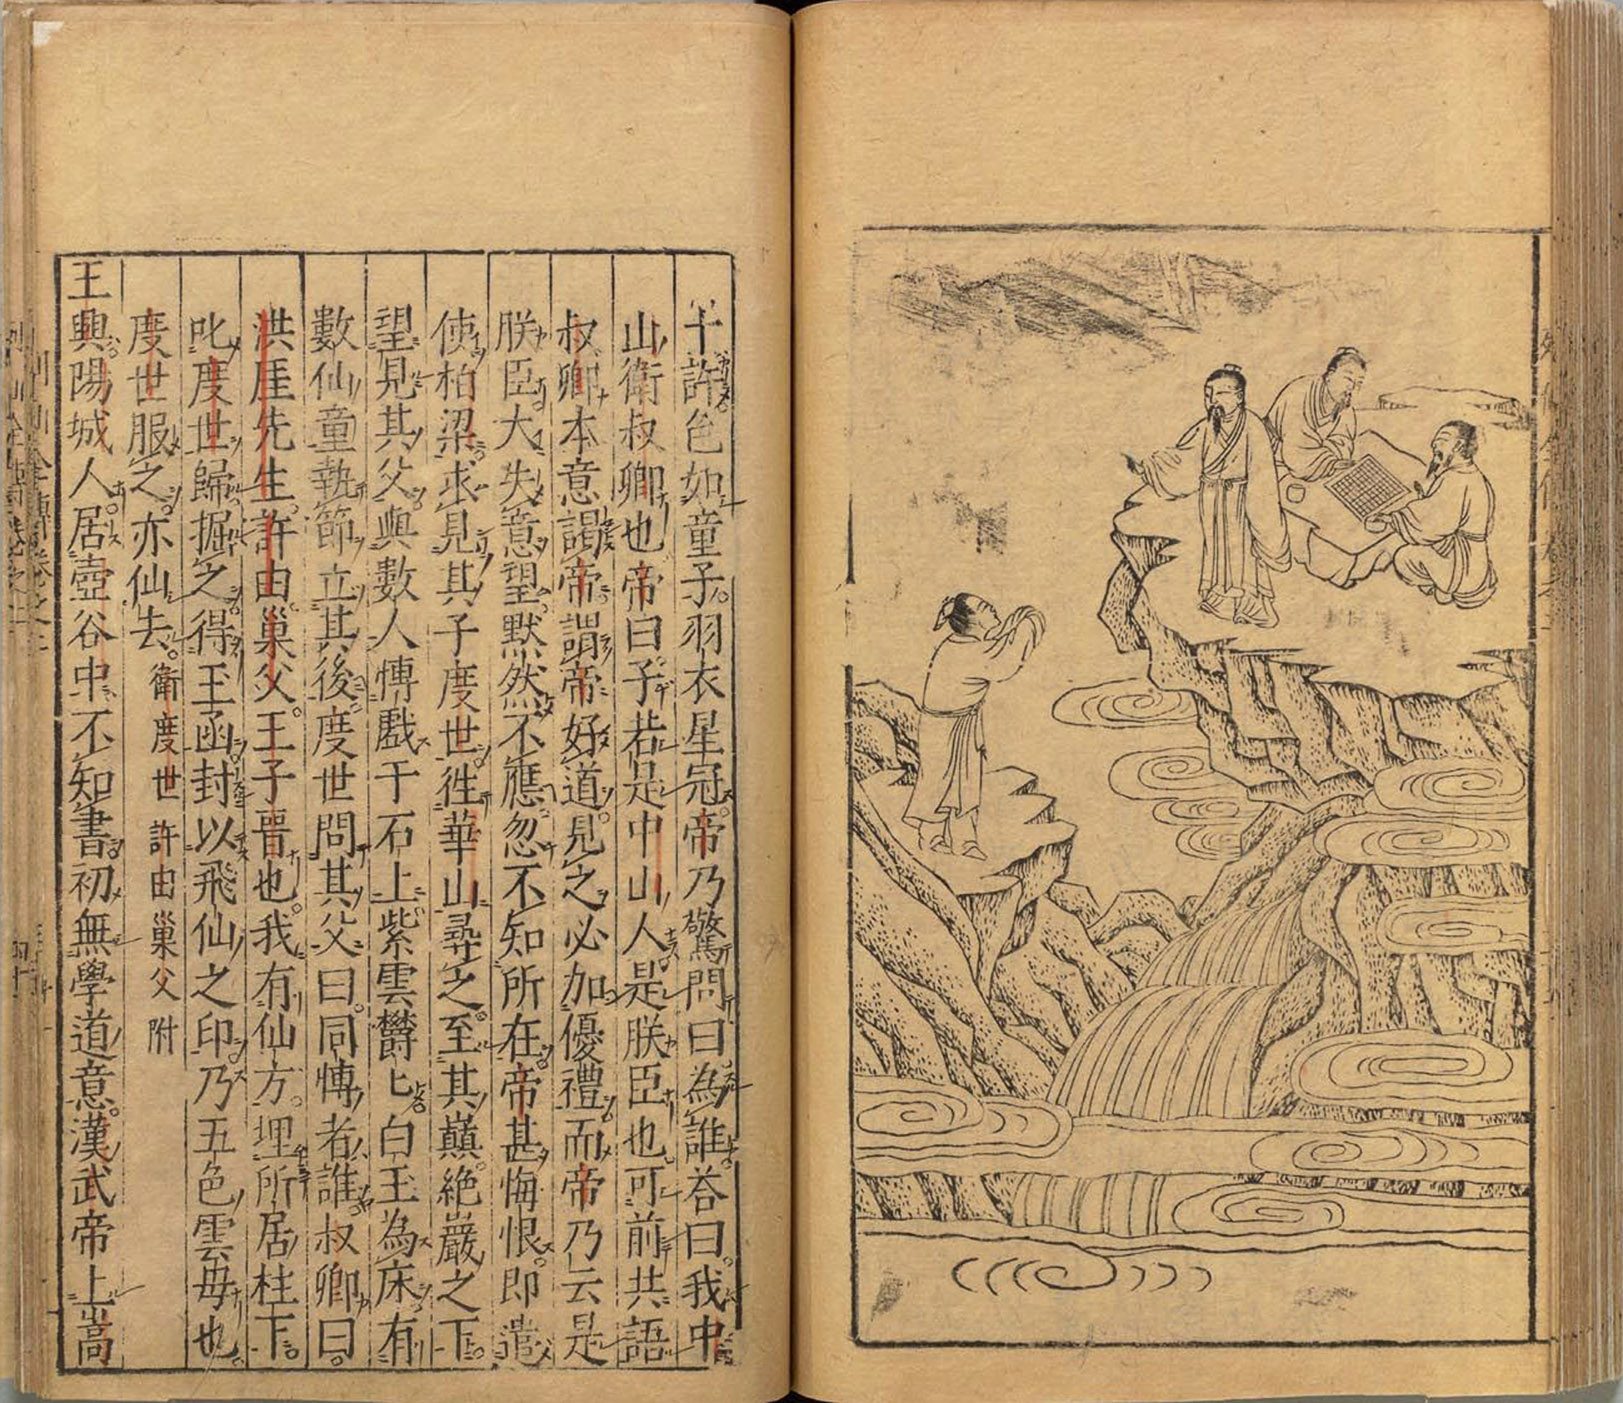 十許色如童子羽衣星冠帝乃驚問曰為誰答曰我中
山衛叔卿也帝曰子若是中山人是朕臣也可前共語
叔卿本意謁帝謂帝好道見之必加優禮而帝乃云是
朕臣大失意望默然不應忽不知所在帝甚悔恨即遣
使柏梁求見其子度世徃華山尋之至其巔絶巖之下
望見其父與數人慱戲于石上紫雲欝匕白玉為床有
數仙童執節立其後度世問其父曰同慱者誰叔卿曰
洪厓先生許由巢父王子晋也我有仙方埋所居柱下
叱度世歸掘之得玉函封以飛仙之印乃五色雲母也
度世服之亦仙去衛度世許由巢父附
王興陽城人居壺谷中不知書初無學道意漢武帝上嵩